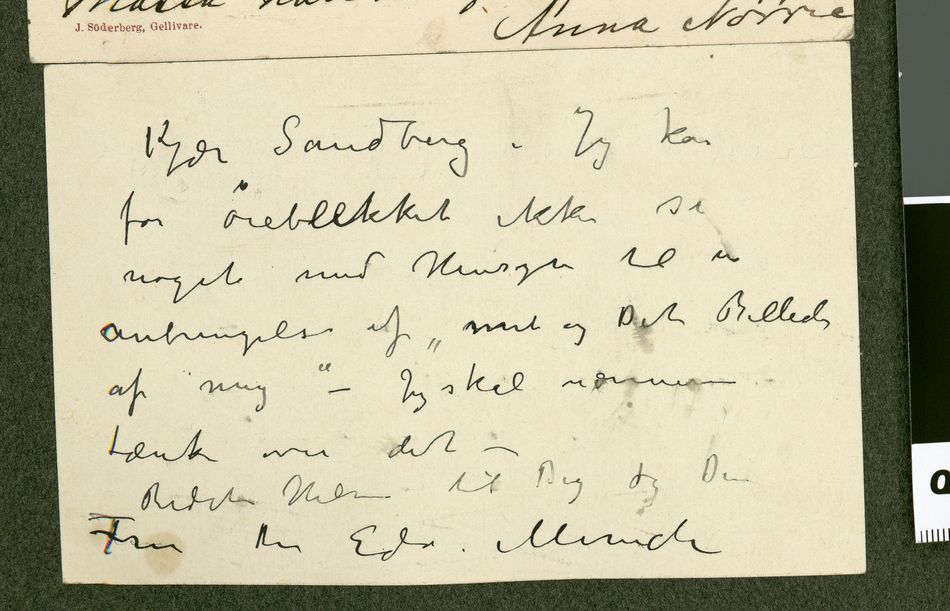 J. Söderberg, Gellivare.
Anna Norrie
Kjær Sandberg. Jeg kan
for öieblikket ikke si
noget med Hensyn til en
anbringelse af „mit og Dit Billede
af mig" – Jeg skal nærmere
tænke over det –
Bedste Hilsen til Dig og Din
Fru Din Edv. Munch